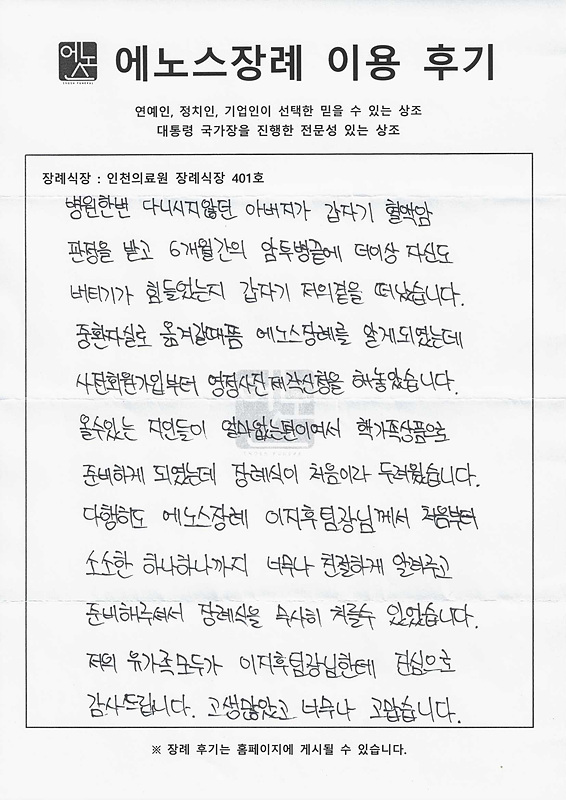 에노스 에노스장례 이용 후기
연예인, 정치인, 기업인이 선택한 믿을 수 있는 상조
대통령 국가장을 진행한 전문성 있는 상조
장례식장 : 인천의료원 장례식장 401호
병원한번 다니시지않던 아버지가 갑자기 혈액암
판정을 받고 6개월간의 암투병끝에 더이상 자신도
버티기가 힘들었는지 갑자기 저의곁을 떠났습니다.
중환자실로 옮겨갈때쯤 에노스장례를 알게되였는데
사전회원가입부터 영정사진제작신청을 해놓았습니다.
올수있는 지인들이 얼마없는편이여서 핵가족상품으로
준비하게 되였는데 장례식이 처음이라 두려웠습니다.
다행히도 에노스장례 이지후팀장님께서 처음부터
소소한 하나하나까지 너무나 친절하게 알려주고
준비해주셔서 장례식을 무사히 치를수 있었습니다.
저의 유가족모두가 이지후팀장님한테 진심으로
감사드립니다. 고생많았고 너무나 고맙습니다.
※ 장례 후기는 홈페이지에 게시될 수 있습니다.